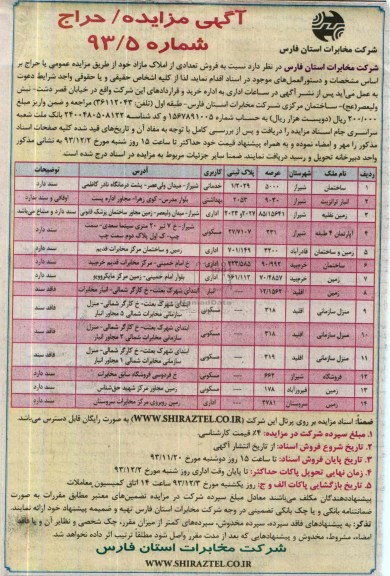 آگهی مزایده/ حراج
شماره ۹۳/۵
شرکت مخابرات استان فارس
شرکت مخابرات استان فارس در نظر دارد نسبت به فروش تعدادی از املاک مازاد خود از طریق مزایده عمومی یا حراج بر
اساس مشخصات و دستورالعمل‌های موجود در اسناد اقدام نماید، لذا از کلیه اشخاص حقیقی و یا حقوقی واجد شرایط دعوت
به عمل می‌آید پس از نشر آگهی در ساعات اداری به اداره خرید و قراردادهای این شرکت واقع در خیابان قصر دشت- نبش
ولیعصر(عج)- ساختمان مرکزی شرکت مخابرات استان فارس- طبقه اول
مراجعه و ضمن واریز مبلغ
۲۰۰/۰۰۰ ریال (دویست هزار ریال) به حساب شماره
بانک ملت شعبه
سراسری جام اسناد مزایده را دریافت و پس از بررسی کامل با توجه به مفاد آن و تاریخ‌های قید شده کلیه صفحات اسناد
مذکور را مهر و امضاء نموده و به همراه پیشنهاد قیمت خود حداکثر تا ساعت ۱۵ روز شنبه مورخ ۹۳/۱۲/۲ به نشانی مذکور
واحد دبیرخانه تحویل و رسید دریافت نمایند. ضمنا سایر جزئیات مربوط به مزایده در اسناد درج شده است.
ردیف نام ملک شهرستان عرصه پلاک ثبتی کاربری آدرس توضیحات
۱ ساختمان شیراز ۵۰۰۰ خدماتی شیراز- میدان ولی‌عصر- پشت درمانگاه نادر کاظمی سند دارد
۲ انبار ترانزیت شیراز ۹۰۳۰ ۲۰۵۳ بهداشتی بلوار مدرس- کوی زهرا- مجاور اداره پست اوقافی و سند ندارد
۳ زمین نقلیه شیراز اداری شیراز- میدان ولیعصر- زمین مجاور ساختمان پزشک قانونی سند دارد و مشاع می‌باشد
۴ آپارتمان ۴ طبقه شیراز ۲۳۱ مسکونی سند دارد
۵ زمین و ساختمان قادرآباد ۳۲۰۰ ۷۰۱/۱۴۹ اداری زمین و ساختمان مرکز مخابرات قدیم سند دارد
۶ ساختمان خرم‌بید اداری خ امام خمینی- مرکز مخابرات قدیم خرم‌بید سند دارد
۷ زمین خرم‌بید اداری بلوار امام خمینی- زمین مرکز مایکروویو سند دارد
۸ زمین اقلید انبار ابتدای شهرک بعثت- خ کارگر شمالی- انبار مخابرات فاقد سند
۹ منزل سازمانی اقلید ۳۱۸ مسکونی ابتدای شهرک بعثت- خ کارگر شمالی- منزل سازمانی مخابرات شمالی ۵ مجاور انبار فاقد سند
۱۰ منزل سازمانی اقلید ۳۱۸ مسکونی ابتدای شهرک بعثت- خ کارگر شمالی- منزل سازمانی مخابرات شمالی ۲ مجاور انبار فاقد سند
۱۱ منزل سازمانی اقلید ۳۱۹ مسکونی ابتدای شهرک بعثت- خ کارگر شمالی- منزل سازمانی مخابرات شمالی ۱ مجاور انبار فاقد سند
۱۲ فروشگاه شیراز ۶۶۲ مسکونی خ فردوسی فروشگاه سابق مخابرات سند دارد
۱۳ زمین فیروزآباد ۱۷۸ مسکونی زمین مجاور مرکز شهید حق‌شناس سند دارد
۱۴ زمین سروستان ۲۷۸۱ اداری زمین روبروی مرکز مخابرات سروستان سند دارد
ضمناً: اسناد مزایده بر روی پرتال این شرکت (WWW.SHIRAZTEL.CO.IR) به صورت رایگان قابل دسترس می‌باشد.
۱. مبلغ سپرده شرکت در مزایده: ۴٪ قیمت کارشناسی.
۲. تاریخ شروع فروش اسناد: از تاریخ انتشار آگهی
۳. تاریخ پایان فروش اسناد: تا ساعت ۱۵ روز دوشنبه مورخ ۹۳/۱۱/۲۰
۴. زمان نهایی تحویل پاکات حداکثر: تا پایان وقت اداری روز شنبه مورخ ۹۳/۱۲/۲
۵. تاریخ بازگشایی پاکات الف و ج: روز یکشنبه مورخ ۹۳/۱۲/۳ ساعت ۱۴ اتاق کمیسیون معاملات
پیشنهاددهندگان مکلف می‌باشند معادل مبلغ سپرده شرکت در مزایده تضمین‌های معتبر مطابق مقررات به صورت
ضمانتنامه بانکی و یا چک بانکی تضمینی در وجه شرکت مخابرات استان فارس تهیه و ضمیمه پیشنهاد خود ارائه نمایند.
تذکر: به پیشنهادهای فاقد سپرده، سپرده مخدوش، سپرده‌های کمتر از میزان مقرر، چک شخصی و نظایر آن و یا فاقد
امضاء، مشروط، مخدوش و پیشنهادهایی که بعد از مدت مقرر واصل شود مطلقا ترتیب اثر داده نخواهد شد.
شرکت مخابرات استان فارس
WWW.SHIRAZTEL.CO.IR